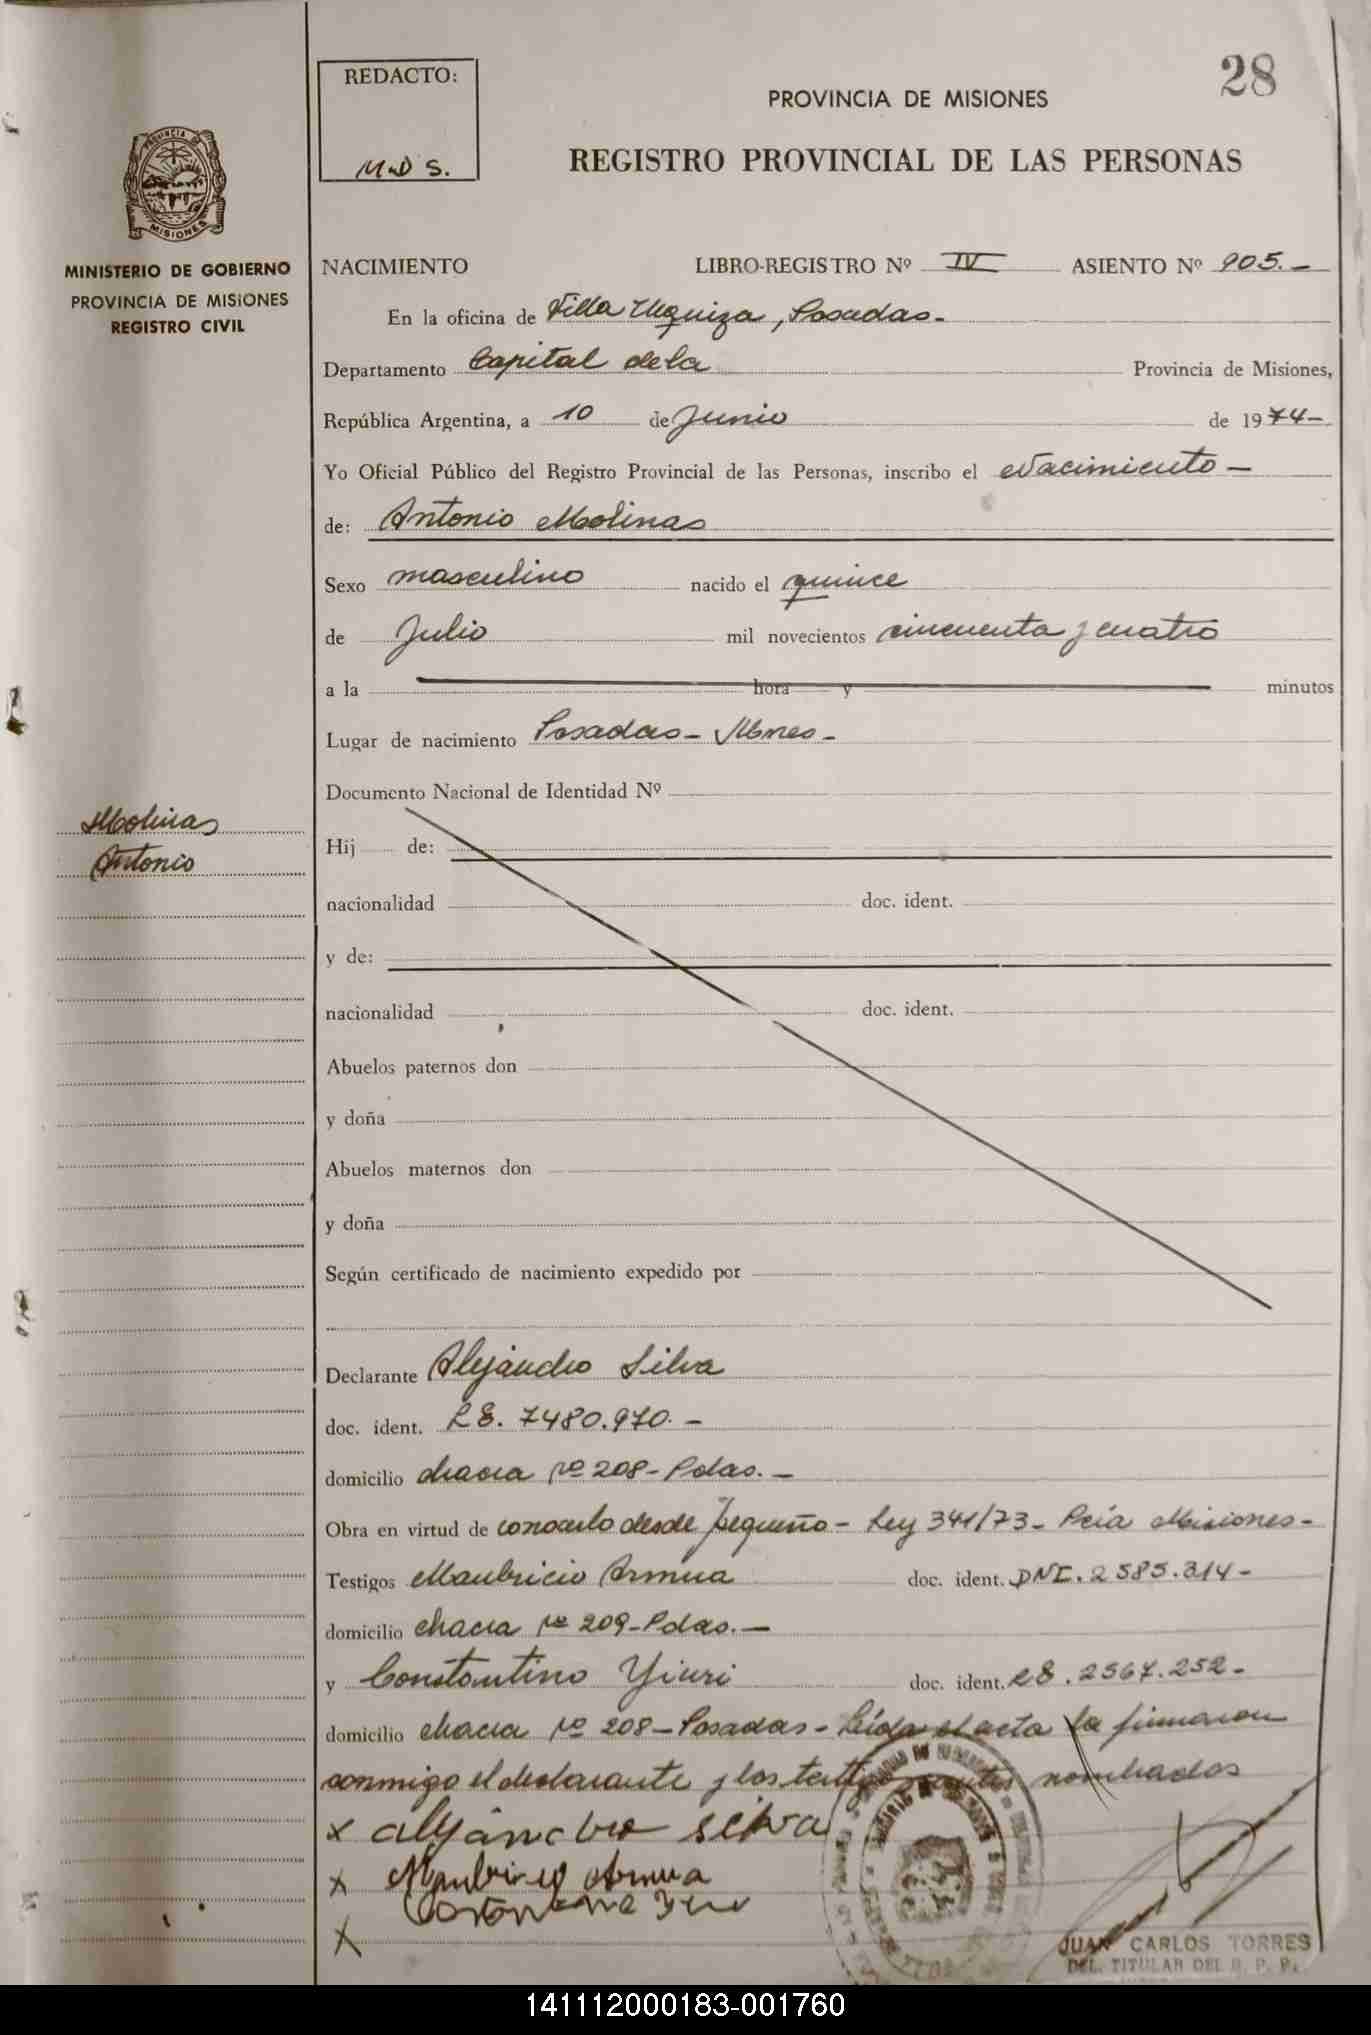 28
REDACTO:
M.D S.
PROVINCIA DE MISIONES
REGISTRO PROVINCIAL DE LAS PERSONAS
PROVINCIA DE
MISIONES
MINISTERIO DE GOBIERNO
PROVINCIA DE MISIONES
REGISTRO CIVIL
NACIMIENTO LIBRO-REGISTRO Nº IV ASIENTO Nº 905.-
En la oficina de Villa Urquiza, Posadas.
Departamento Capital de la Provincia de Misiones,
República Argentina, a 10 de Junio de 1974-
Yo Oficial Público del Registro Provincial de las Personas, inscribo el Nacimiento -
de: Antonio Molinas
Sexo masculino nacido el quince
de Julio mil novecientos cincuenta y cuatro
a la hora y minutos
Lugar de nacimiento Posadas - Mnes -
Documento Nacional de Identidad Nº
Molinas
Antonio
Hij de:
nacionalidad doc. ident.
y de:
nacionalidad doc. ident.
Abuelos paternos don
y doña
Abuelos maternos don
y doña
Según certificado de nacimiento expedido por
Declarante Alejandro Silva
doc. ident. LE. 7480.970. -
domicilio chacra nº 208 - Pdas. -
Obra en virtud de conocerlo desde pequeño - Ley 341/73 - Pcia Misiones -
Testigos Maubricio Armua doc. ident. DNI. 2585.314 -
domicilio chacra nº 209 - Pdas. -
y Constantino Yiuri doc. ident. LE. 2567.252 -
domicilio chacra nº 208 - Posadas - Leída el acta la firmaron
conmigo el declarante y los testigos nombrados
x alejandro silva
x Maubricio Armua
x
JUAN CARLOS TORRES
DEL. TITULAR DEL R. P. P.
141112000183-001760